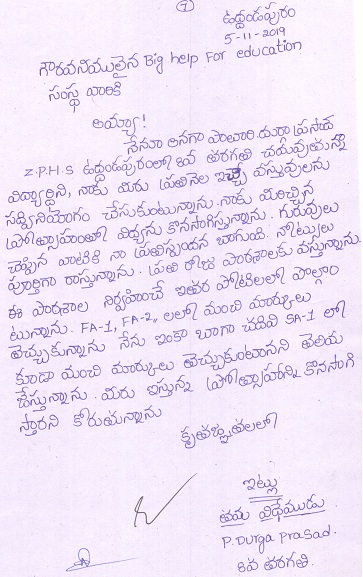 7
ఉద్దండపురం
5-11-2019
గౌరవనీయులైన Big help For education
సంస్థ వారికి
అయ్యా!
నేనూ అనగా పొలారి.దుర్గా ప్రసాద్
Z.P.H.S ఉద్దండపురంలో 8వ తరగతి చదువుతున్న
విద్యార్థిని, నాకు మీరు ప్రతినెల ఇచ్చే వస్తువులను
సద్వినియోగం చేసుకుంటున్నాను. నాకు మీరిచ్చిన
ప్రోత్సాహంతో విద్యను కొనసాగిస్తున్నాను. గురువులు
చెప్పిన వాటికి నా ప్రతిస్పందన బాగుంది. నోట్సులు
పూర్తిగా రాస్తున్నాను. ప్రతి రోజు పాఠశాలకు వస్తున్నాను.
ఈ పాఠశాల నిర్వహించే ఇతర పోటీలలో పాల్గొం
టున్నాను. FA-1, FA-2,, లలో మంచి మార్కులు
తెచ్చుకున్నాను నేను ఇంకా బాగా చదివి SA-1 లో
కూడా మంచి మార్కులు తెచ్చుకుంటానని తెలియ
చేస్తున్నాను. మీరు ఇస్తున్న ప్రోత్సాహాన్ని కొనసాగి
స్తారని కోరుతున్నాను
కృతజ్ఞతలతో
ఇట్లు
తమ విధేముడు
P. Durga Prasad.
8వ తరగతి.